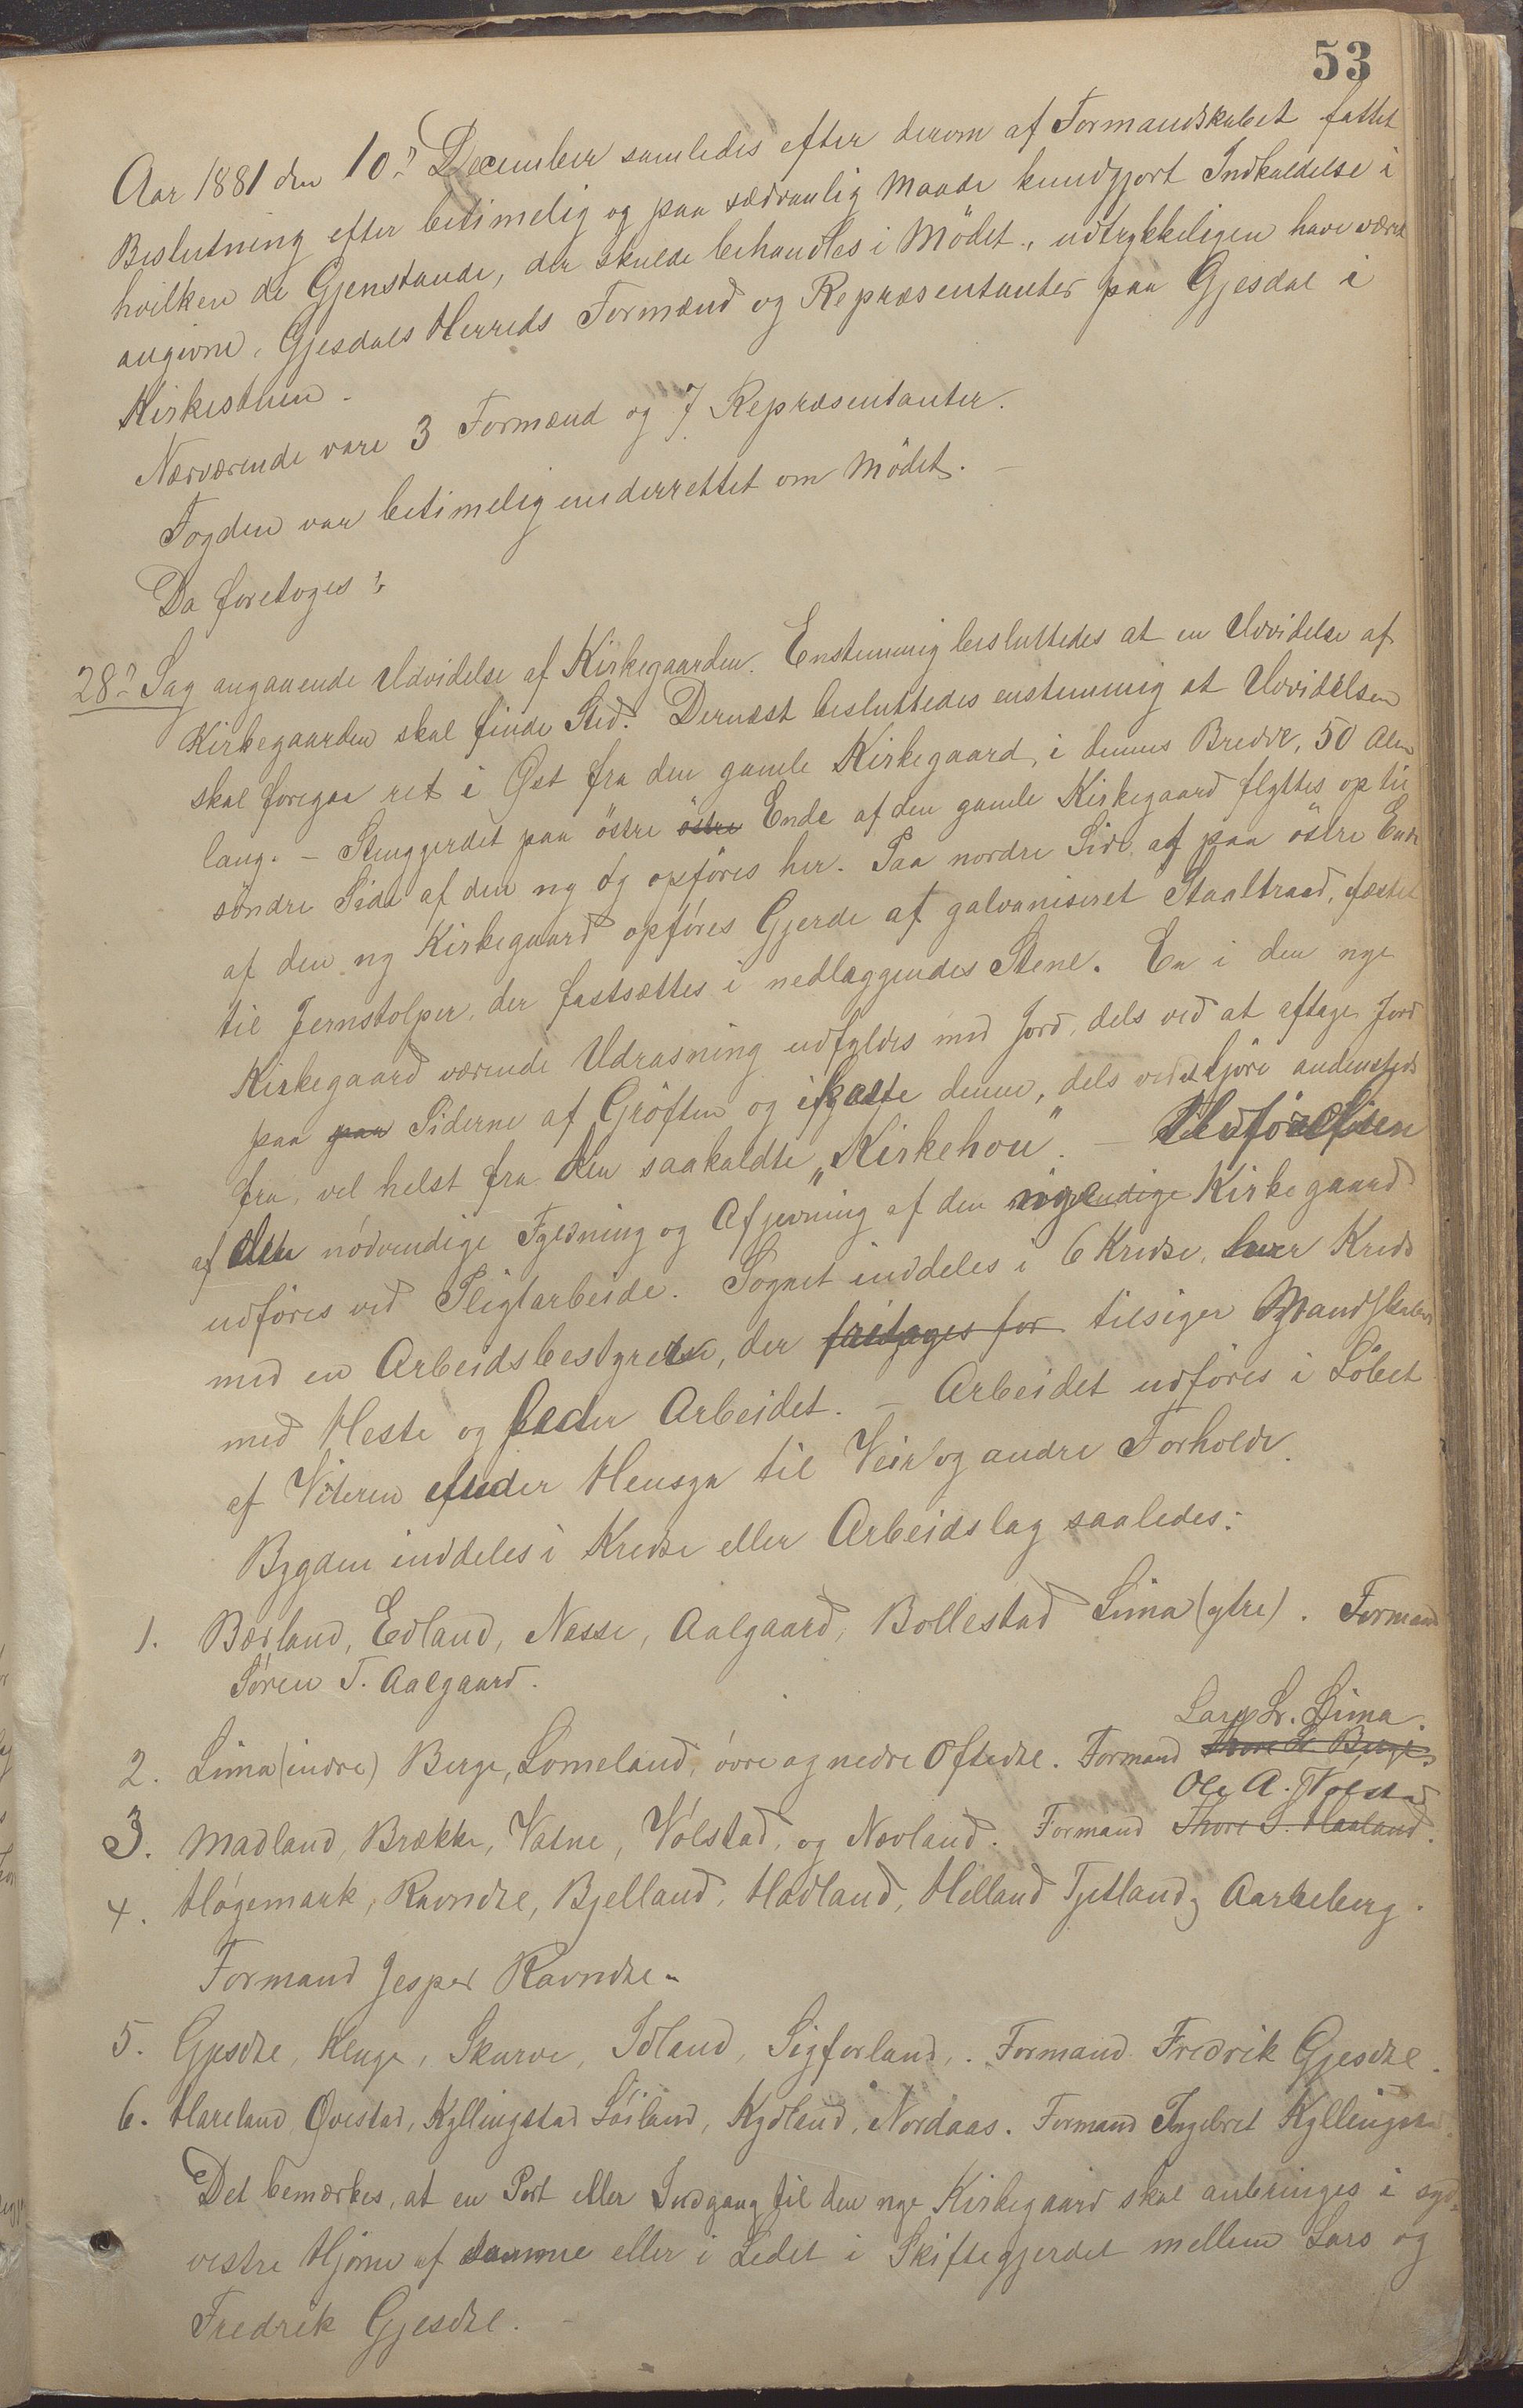 53
Aar 1881 den 10d December samledes efter derom af Formandskabet fattet
Beslutning efter betimelig og paa sædvanlig Maade kundgjort Indkaldelse i
hvilken de Gjenstande, der skulde behandles i Mödet, udtrykkeligen have været
angivne, Gjesdals Herreds Formænd og Repræsentanter paa Gjesdal i
Kirkestuen.
Nærværende vare 3 Formænd og 7 Repræsentanter.
Fogden var betimelig underrettet om Mödet. –
Da foretoges:
28d Sag angaaende Udvidelse af Kirkegaarden. Enstemmig besluttedes at en Udvidelse af
Kirkegaarden skal finde Sted. Dernæst besluttedes enstemmig at Udvidelsen
skal foregaa ret i Öst fra den gamle Kirkegaard, i dennes Bredde, 50 Alen
lang. – Stenggerdet paa östre östre Ende af den gamle Kirkegaard flyttes op til
söndre Side af den ny og opföres her. Paa nordre Side og paa östre Ende
af den ny Kirkegaard opföres Gjerde af galvaniseret Staaltraad, fæstet
til Jernstolper, der fastsættes i nedlæggendes Stene. En i den nye
Kirkegaard værende Udrasning udfyldes med Jord, dels ved at aftage Jord
paa paa Siderne af Gröften og ikaste denne, dels ved at kjöre andensteds
fra, vel helst fra den saakaldte „Kirkehou“. – Udförelsen
af den nödvendige Fyldning og Afjevning af den nye Kirkegaard
udföres ved Pligtarbeide. Sognet inddeles i 6 Kredse, hver Kreds
med en Arbeidsbestyrer, der fritages for tilsiger Mandskabet
med Heste og leder Arbeidet. – Arbeidet udföres i Löbet
af Vinteren under Hensyn til Veir og andre Forholde.
Bygden inddeles i Kredse eller Arbeidslag saaledes:
1. Bærland, Edland, Nesse, Aalgaard, Bollestad Lima (ytre). Formand
Sören T. Aalgaard.
Lars L. Lima.
2. Lima (indre) Berge, Limeland, övre og nedre Oftedal. Formand Thore Berge
Ole A. Volstad
3. Madland, Brække, Vatne, Völstad, og Nevland. Formand Thore S. Haaland.
4. Högemark, Ravndal, Bjelland, Hadland, Helland Tjetland, Aarreberg.
Formand Jesper Ravndal.
5. Gjesdal, Kluge, Skurve, Idland, Sigforland,. Formand Fredrik Gjesdal.
6. Hareland, Qvestad, Kyllingstad Söiland, Kydland, Nordaas. Formand Ingebret Kyllingstad.
Det bemærkes, at en Port eller Indgang til den nye Kirkegaard skal anbringes i syd-
vestre Hjörne af samme eller i Ledet i Skiftegjerdet mellem Lars og
Fredrik Gjesdal. –